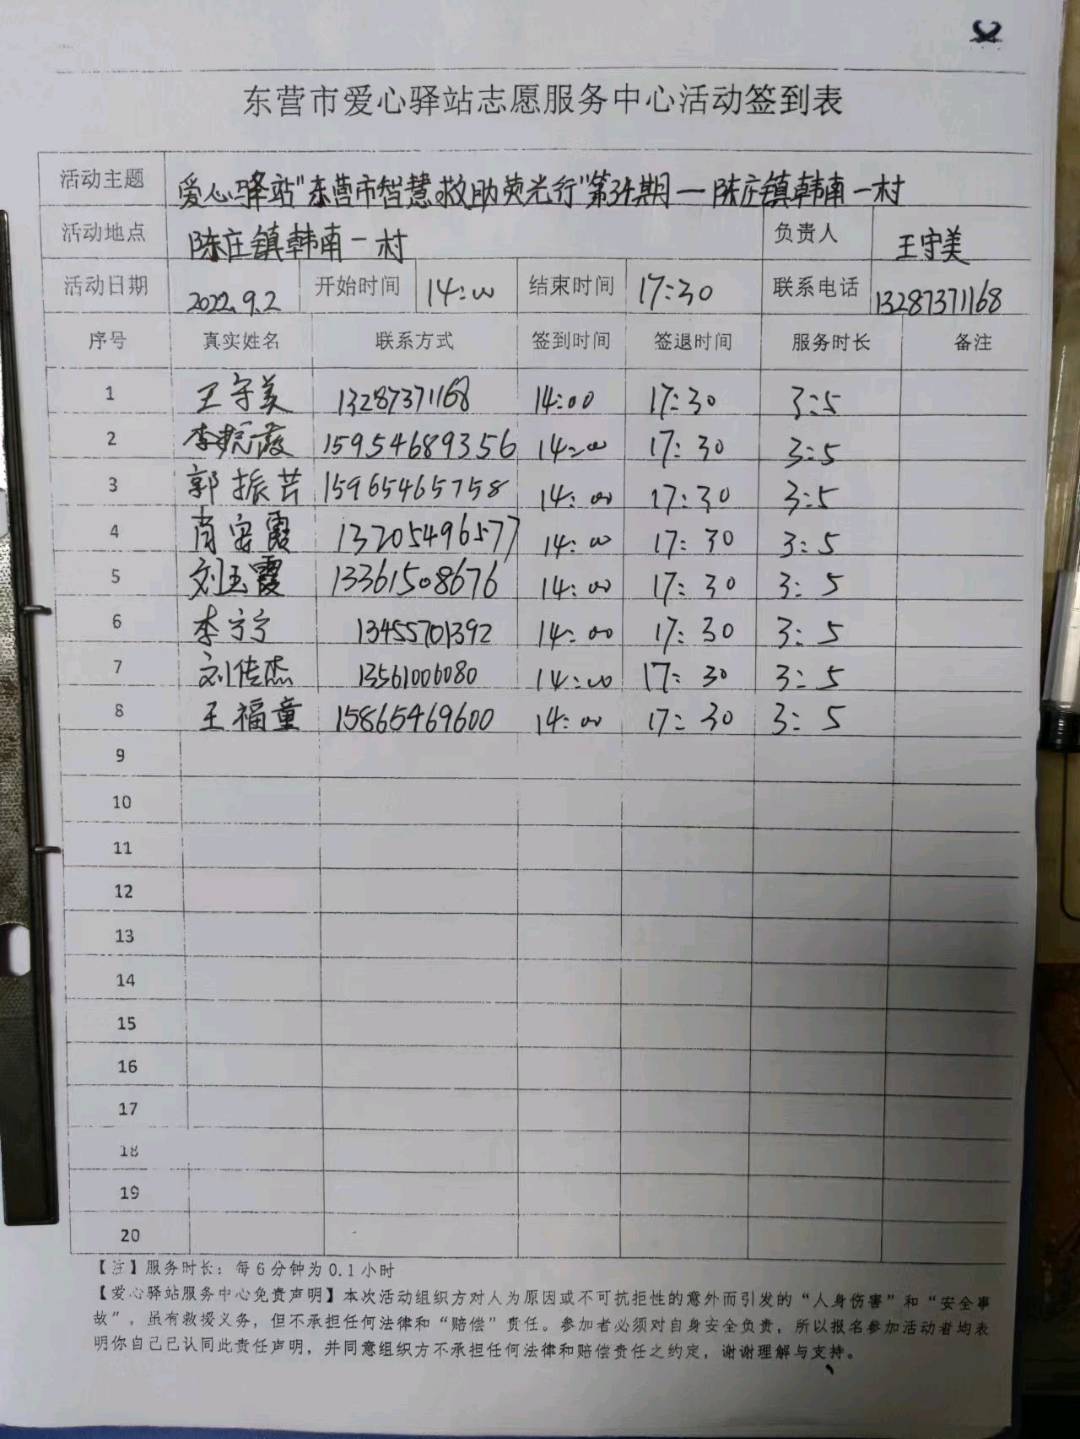 东营市爱心驿站志愿服务中心活动签到表
活动主题 爱心驿站"东营市智慧救助荧光行"第34期一陈庄镇韩南一村
活动地点 陈庄镇韩南一村 负责人 王守美
活动日期 2022.9.2 开始时间 14:00 结束时间 17:30 联系电话 13287371168
序号 真实姓名 联系方式 签到时间 签退时间 服务时长 备注
1 王守美 13287371168 14:00 17:30 3:5
2 李 霞 15954689356 14:00 17:30 3:5
3 郭振芸 15965465758 14:00 17:30 3:5
4 肖 霞 13205496577 14:00 17:30 3:5
5 刘玉霞 13361508676 14:00 17:30 3:5
6 李宁宁 13455701392 14:00 17:30 3:5
7 刘传杰 13561006080 14:00 17:30 3:5
8 王福童 15865469600 14:00 17:30 3:5
9
10
11
12
13
14
15
16
17
18
19
20
【注】服务时长：每6分钟为0.1小时
【爱心驿站服务中心免责声明】本次活动组织方对人为原因或不可抗拒性的意外而引发的“人身伤害”和“安全事
故”，虽有救援义务，但不承担任何法律和“赔偿”责任。参加者必须对自身安全负责，所以报名参加活动者均表
明你自己已认同此责任声明，并同意组织方不承担任何法律和赔偿责任之约定，谢谢理解与支持。